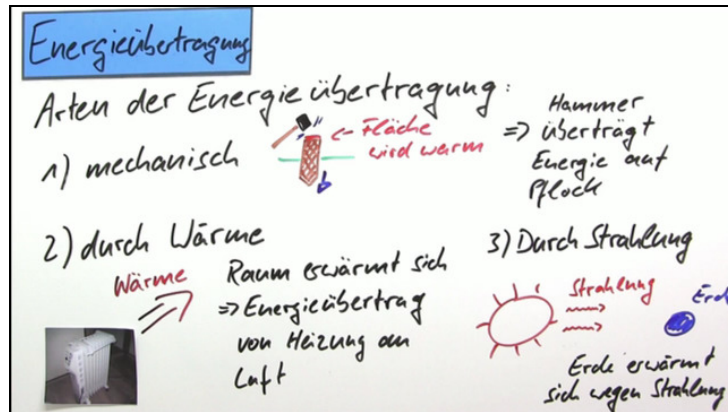 Energieübertragung
Arten der Energieübertragung:
1) mechanisch
<- Fläche
wird warm
=> Hammer
überträgt
Energie auf
Pflock
2) durch Wärme
Wärme
Raum erwärmt sich
=> Energieübertrag
von Heizung an
Luft
3) Durch Strahlung
Strahlung
Erd
Erde erwärmt
sich wegen Strahlung